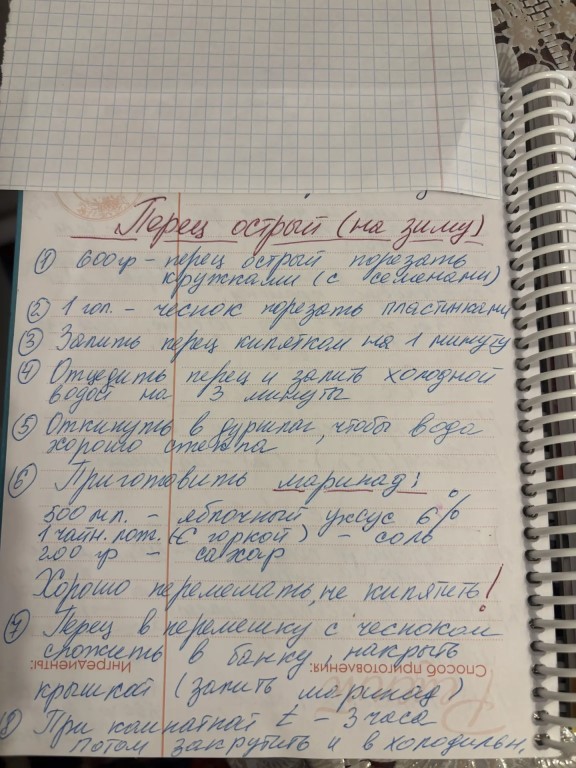 Перец острый (на зиму)
① 600гр – перец острый порезать
кружками (с семенами)
② 1 гол. – чеснок порезать пластинками
③ Залить перец кипятком на 1 минуту
④ Отцедить перец и залить холодной
водой на 3 минуты
⑤ Откинуть в дуршлаг, чтобы вода
хорошо стекла
⑥ Приготовить маринад!
500 мл. – яблочный уксус 6%
1 чайн. лож. (с горкой) – соль
200 гр – сахар
Хорошо перемешать, не кипятить!
⑦ Перец в перемешку с чесноком
сложить в банку, накрыть
Ингредиенты: Способ приготовления:
крышкой (залить маринад)
Рецепт
⑧ При комнатной t – 3 часа
потом закрутить и в холодильн.